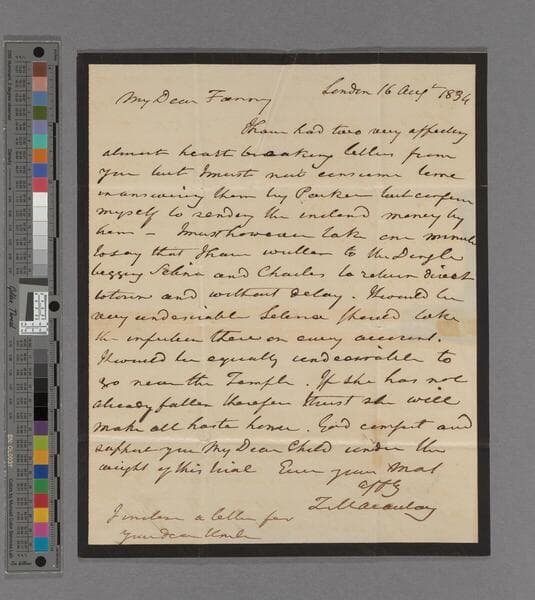 London 16 Augt 1834
My Dear Fanny
I have had two very affecting
almost heart breaking letters from
you but I must not consume time
in answering them by Parker but confine
myself to sending the inclosed money by
him – I must however take one minute
to say that I have written to the Dingle
begging Selina and Charles to return direct
to town and without delay. It would be
very undesirable Selina should take
the infection there on every account.
It would be equally undesirable to
go near the Temple. If she has not
already fallen therefore I trust she will
make all haste home. God comfort and
support you My Dear Child under the
weight of this trial Ever your Most
affly
Z Macaulay
I inclose a letter for
your dear Uncle